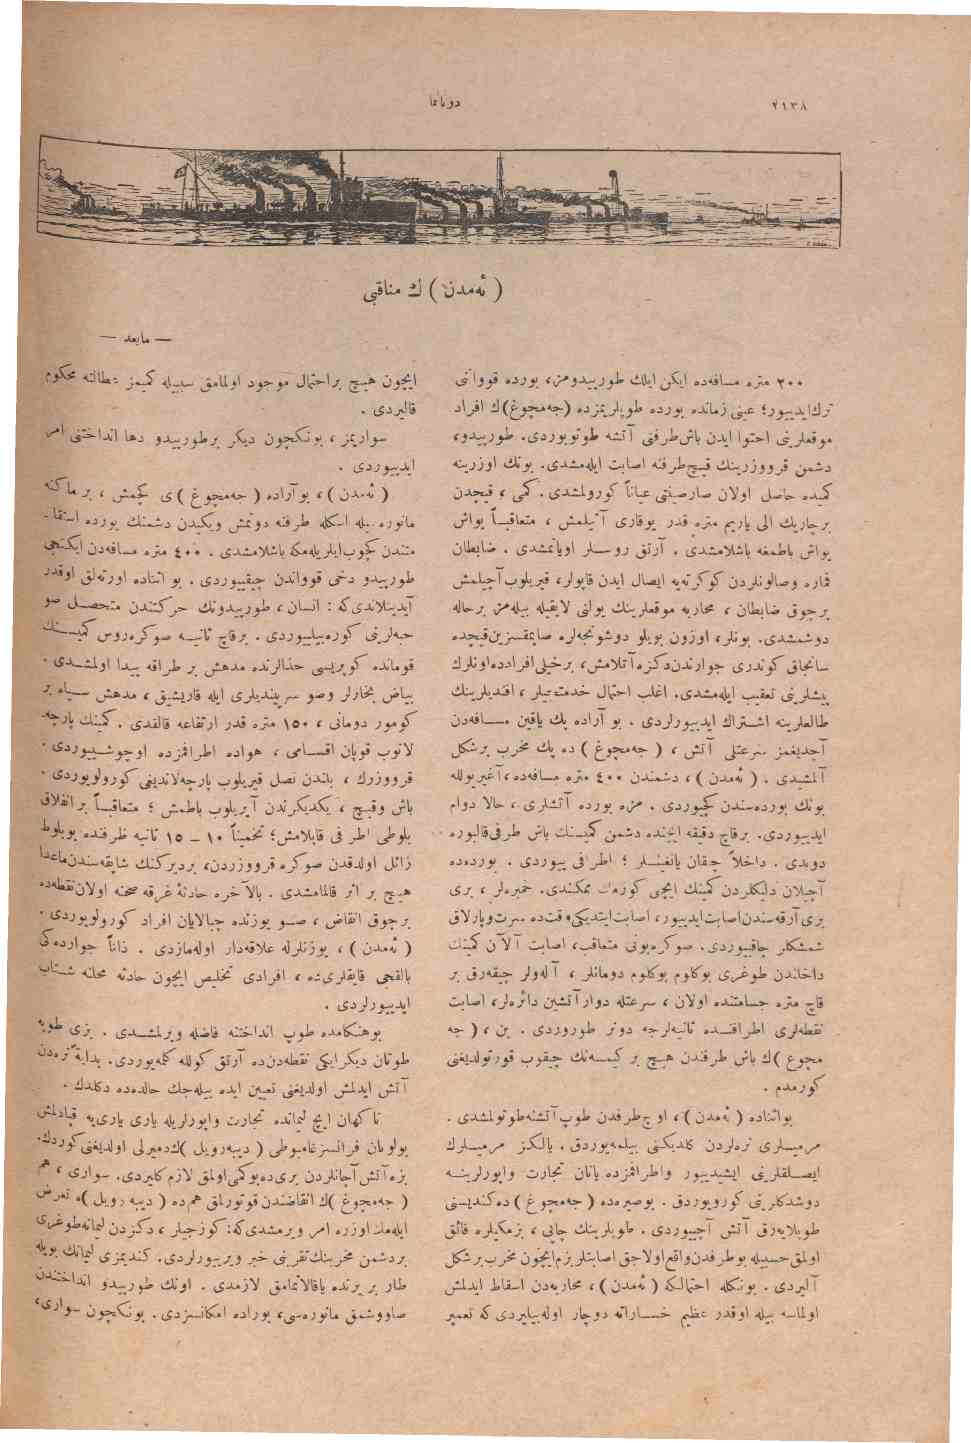 ٢١٣٨
دونانما
( ئه‌مدن ) ك مناقبی
— مابعد —
٢٠٠ متره مسافه‌ده ایكن ایلك طورپیدومزی، بورده قوواننی
ترك‌ایدییور؛ عینی زمانده بورده طوپلریمزده (جه‌مچوغ)ك افراد
موقعلرینی احتوا ایدن باش‌طرفنی آتشه طوتویوردی. طورپیدو،
دشمن قرووزرینك قیچ‌طرفنه اصابت ایله‌مشدی. بونك اوزرینه
كمیده حاصل اولان صارصینتی عیاناً كورولمشدی. كمی ، قیچدن
برچاریك الی یاریم متره قدر یوقاری آتیلمش ، متعاقبـاً یواش
یواش باطمغه باشلامشدی . آرتق روسـلر اویانمشدی . ضابطان
قماره وصالونلردن كوكرته‌یه ایصال ایدن قاپولر، قیریلوب‌آچیلمش
برچوق ضابطان ، محاربه موقعلرینك یولنی لایقیله بیله‌مز برحاله
دوشمشدی. بونلر، اوزون بویلو دوشونجه‌لره صاپمقسزین‌قیچده
سانجاق كوندری جوارندن‌دكزه‌آتلامش، برخیلی‌افرادده‌اونلرك
پیشلرینی تعقیب ایله‌مشدی. اغلب احتمال خدمتجیلر ، افندیلرینك
طالعلرینه اشـتراك ایدییورلردی . بو آراده پك یاقین مسـافه‌دن
آچدیغمز سرعتلی آتش ، ( جه‌مچوغ ) ده پك مخرب برشكل
آلمشیدی . ( ئه‌مدن )، دشمندن ٤٠٠ متره مسافه‌ده، آغیریوللە
بونك بورده‌سندن كچیوردی . مزه بورده آتشلری ، حالا دوام
ایدییوردی. برقاچ دقیقه ایچنده دشمن كمیـنك باش طرفی‌قالبوره
دوندی . داخلاً چیقان یانغینـلر ؛ اطرافی یییوردی . بورده‌ده
آچیلان دلیكلردن كمینك ایچی كورمك ممكندی. خمبره‌لر ، بری
بری آرقه‌سندن‌اصابت‌ایدییور، اصابت‌ایتدیكی‌وقت‌ده سرت‌وپارلاق
شمشكلر چاقییوردی. صوكره‌بونی متعاقب، اصابت آلان كمینك
داخلندن طوغری بوكلوم بوكلوم دومانلر ، آله‌ولر چیقه‌رق بر
قاچ متره جسامتنده اولان ، سرعتله دوار آتشین دائره‌لر، اصابت
نقطه‌لری اطرافنـده ثانیه‌لرجه دونر طوروردی . بن ، ( جه
مچوغ )ك باش طرفندن هیچ بر كیمسه‌نك چیقوب قورتولدیغنی
كورمدم .
بواثناده ( ئه‌مدن )، اوچ‌طرفدن طوپ‌آتشنه‌طوتولمشدی .
مرمیـلری نره‌لردن كلدیكنی بیلمه‌یوردق. یالكز مرمیـلرك
ایصـلقلرینی ایشیدییور واطرافمزده یاتان تجارت واپورلرینـه
دوشدكلرینی كورویوردق . بوصیره‌ده ( جه‌مچوغ ) ده‌كندیسنی
طوپلایه‌رق آتش آچییوردی . طوپلرینك چاپی ، بزمكیلره فائق
اولمق حسبیله بوطرفدن‌واقع‌اولاجق اصابتلربزم‌ایچون مخرب برشكل
آلیردی . بونكله احتمالكه ( ئه‌مدن )، محاربه‌دن اسقاط ایدلمش
اولماسه بیله اوقدر عظیم خسـاراته دوچار اوله‌بیلیردی كه تعمیر
ایچون هیچ براحتمال موجود اولمامق سببیله كمیمز عطالته محكوم
قالیردی .
سواریمز ، بونكچون دیكر برطورپیدو دها انداختنی امر
ایدییوردی .
( ئه‌مدن )، بوآراده ( جه‌مچوغ ) ی كچمش ، بر ماكنه
مانوره‌سیله اسكله طرفنه دونمش ویكیدن دشمنك بورده استقا-
متندن كچوب‌ایلریله‌مكه باشلامشدی . ٤٠٠ متره مسافه‌دن ایكنجی
طورپیدو دخی قوواندن چیقییوردی . بو اثناده اورته‌لق اوقدر
آیدینلاندی‌كه : انسان ، طورپیدونك حركتندن متحصـل صو
حبه‌لرینی كوره‌بیلییوردی . برقاچ ثانیـه صوكره‌روس كمیـنك
قومانده كوپریسی حذالرنده مدهش بر طراقه پیدا اولمشـدی .
بیاض بخارلر وصو سرپیندیلری ایله قاریشیق ، مدهش سـیاه بر
كومور دومانی ، ١٥٠ متره قدر ارتفاعه قالقدی . كمینك پارچه-
لانوب قوپان اقسـامی ، هواده اطرافمزده اوچوشـییوردی .
قرووزرك ، بلندن نصل قیریلوب پارچه‌لاندیغی كورولویوردی .
باش وقیـچ ، یكدیكرندن آیریلوب باطمش ؛ متعاقبـاً بر انفلاق
بلوطی اطرافی قاپلامش؛ تخمیناً ١٠ - ١٥ ثانیه ظرفنده بوبلوط
زائل اولدقدن صوكره قرووزردن، بردیركنك شاپقه‌سندن‌ماعدا
هیـچ بر اثر قالمامشدی . بالآخره حادثۀ غرقه صحنه اولان‌نقطه‌ده
برچوق انقاض ، صـو یوزنده چبالایان افراد كورولویوردی .
( ئه‌مدن ) ، بونلرله علاقه‌دار اوله‌مازدی . ذاتاً جوارده‌كی
بالقجی قایقلری‌ده ، افرادی تخلیص ایچون حادثه محلنه شـتاب
ایدییورلردی .
بوهنكامده طوپ انداختنه فاصله ویرلمشـدی . بزی طوپه
طوتان دیكرایكی نقطه‌دن‌ده آرتق كولله كلمه‌یوردی. بدایةً نره‌دن
آتش ایدلمش اولدیغنی تعیین ایده بیله‌جك حالده‌ده دكلدك .
ناكهان ایچ لیمانده تجارت واپورلریله یاری یاری‌یه قپادلمش
بولونان فرانسزغامبوطی ( دیبه‌رویل )ك‌دمیرلی اولدیغنی‌كوردك.
بزه‌آتش آچانلردن بری‌ده‌بوكمی‌اولمق لازم‌كلیردی. سواری ، هم
( جه‌مچوغ )ك انقاضندن قوتورلمق هم‌ده ( دیبه رویل )ه تعرض
ایله‌مك اوزره امر ویرمشدی‌كه: كوزجیلر ، دكزدن لیمانه‌طوغری
بردشمن مخربنك‌تقربنی خبر ویرییورلردی. كندیمزی لیمانك بویله
طار بر یرنده یاقالاتمامق لازمدی . اونك طورپیدو انداختندن
صاووشمق مانوره‌سی، بوراده امكانسزدی. بونكچون سواری،